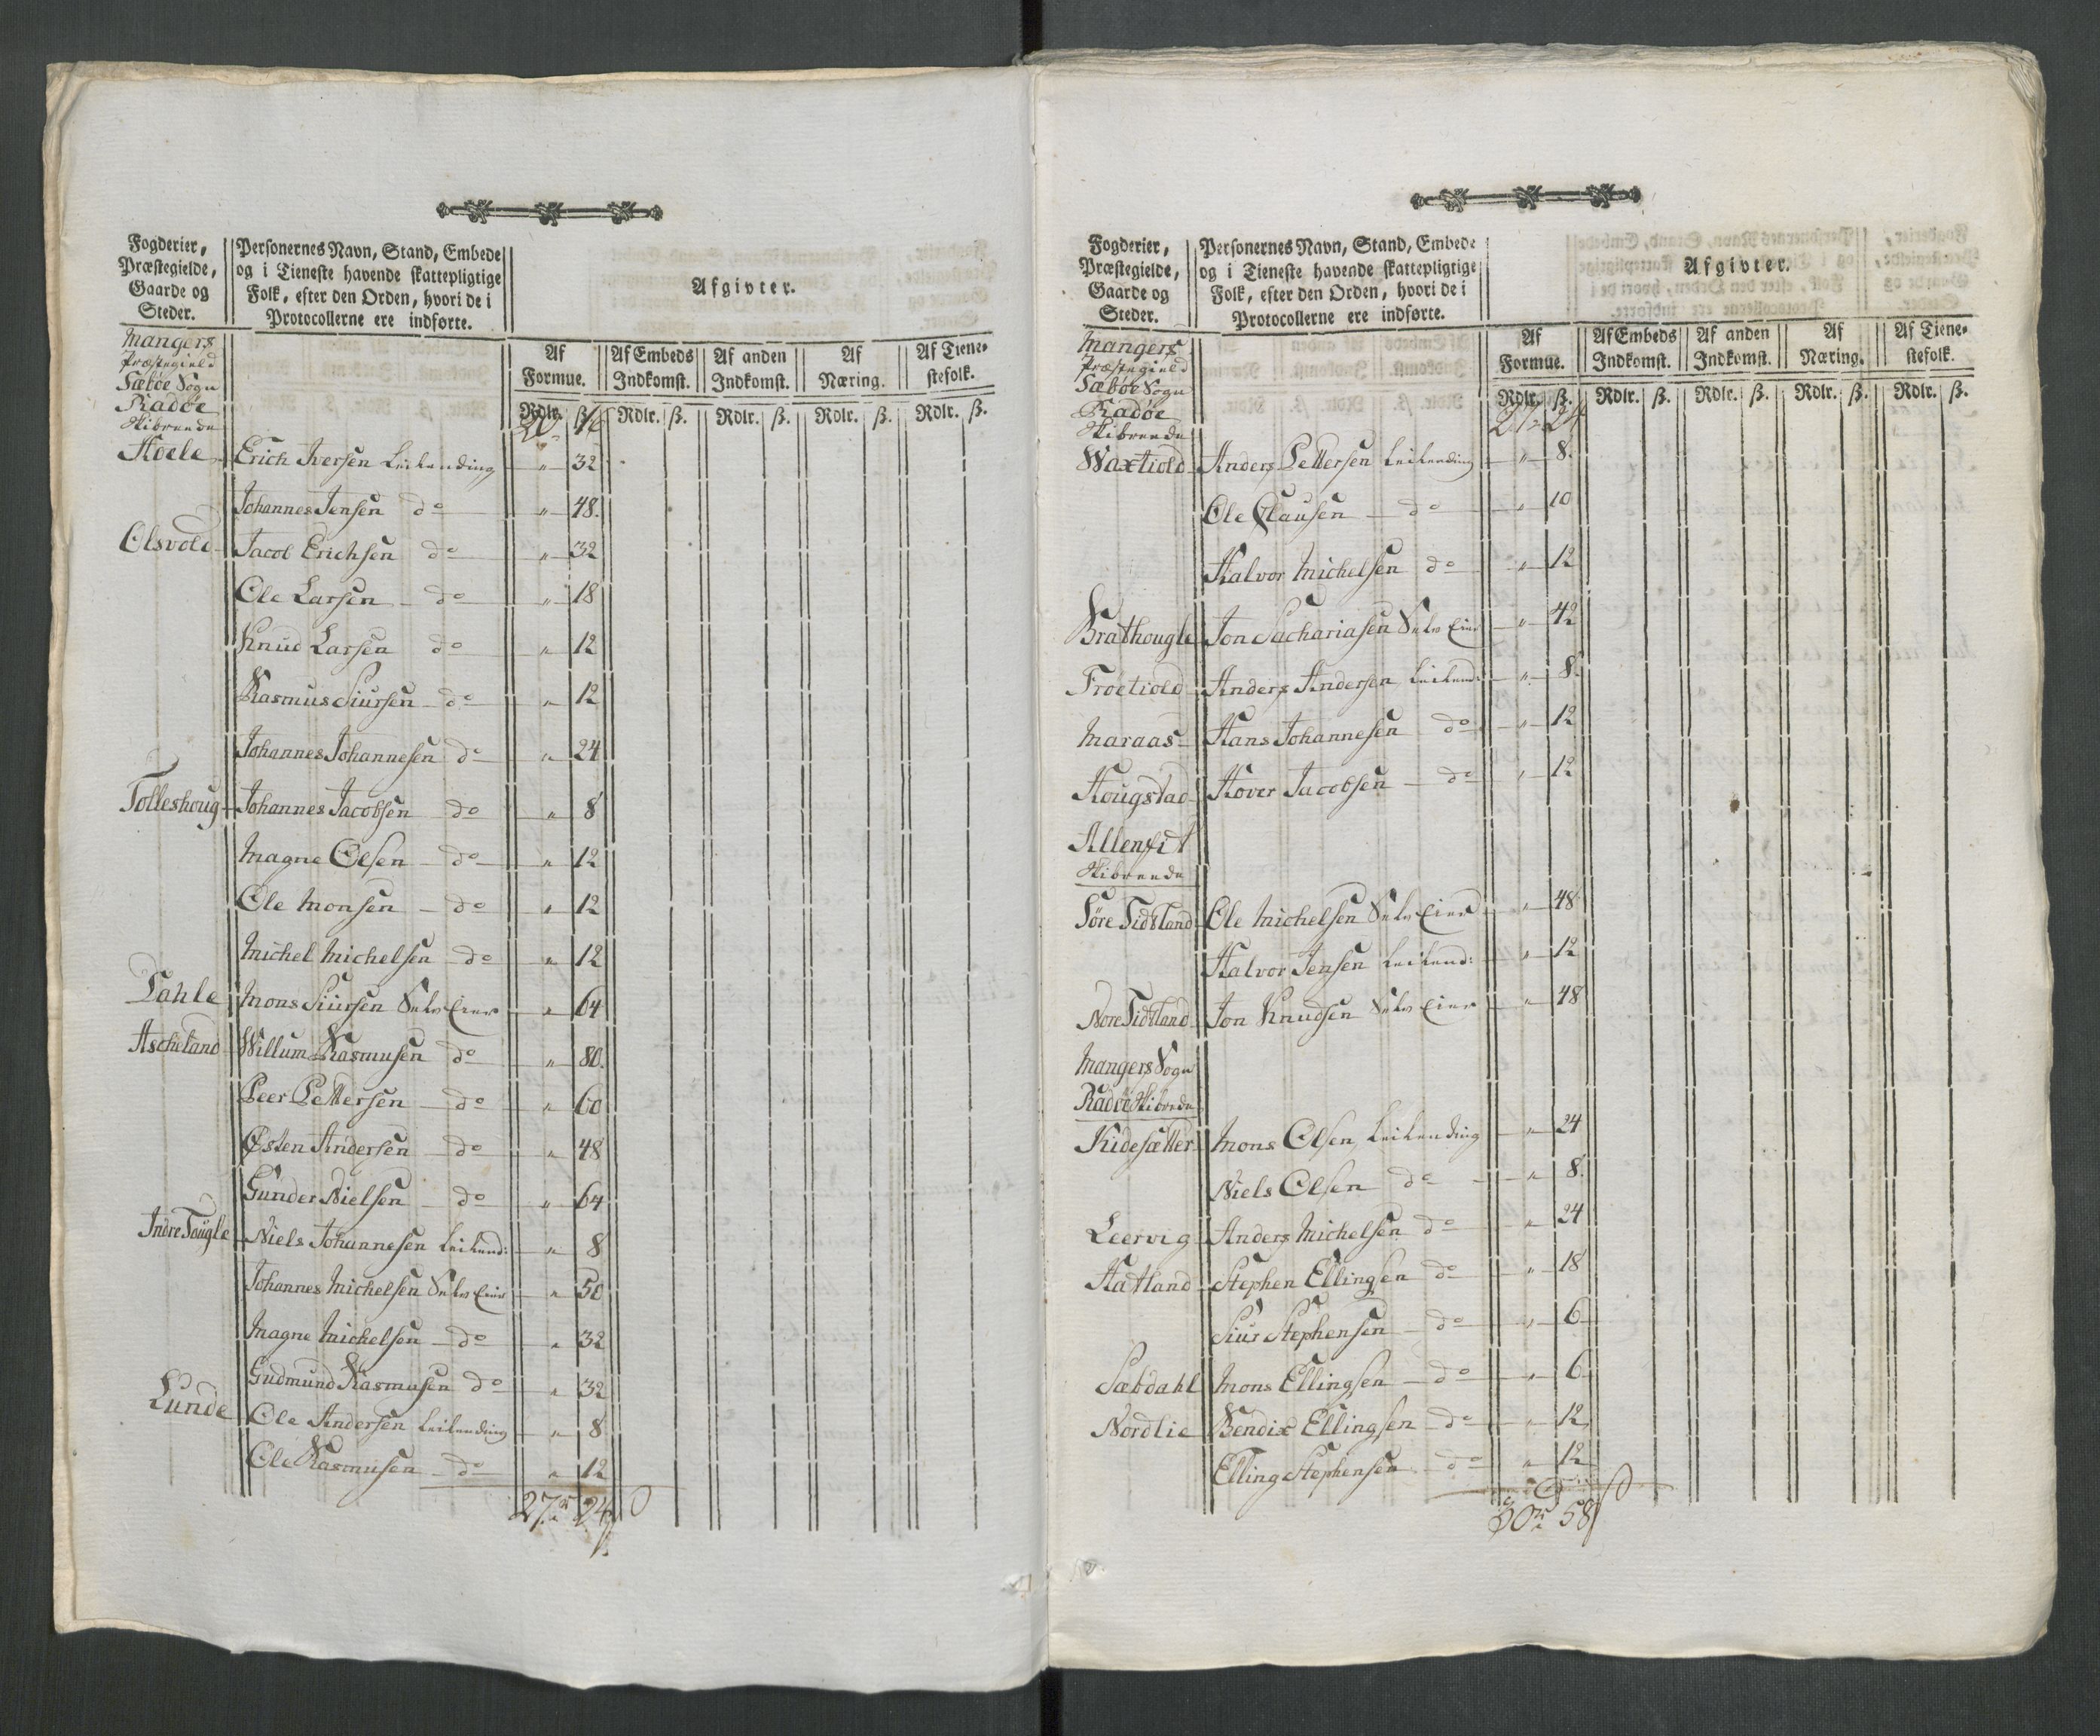 Fogderier,
Præstegielde,
Gaarde og
Steder.
Personernes Navn, Stand, Embede
og i Tieneste havende skattepligtige
Folk, efter den Orden, hvori de i
Protocollerne ere indførte.
Afgivter.
Mangers
Præstegield
Sæbøe Sogn
Radøe
Skibreede
Af Formue.
Af Embeds Indkomst.
Af anden Indkomst.
Af Næring.
Af Tienestefolk.
Rdlr. ß. Rdlr. ß. Rdlr. ß. Rdlr. ß. Rdlr. ß.
Hoele Erich Iversen Leilending " 32
Johannes Jensen do " 48.
Olsvold Jacob Erichsen do " 32
Ole Larsen do " 18
Knud Larsen do " 12
Rasmus Siursen do " 12
Johannes Johannesen do " 24
Tolleshoug Johannes Jacobsen do " 8
Magne Olsen do " 12
Ole Monsen do " 12
Michel Michelsen do " 12
Dahle Mons Siursen Selv Eier " 64
Ascheland Willum Rasmusen do " 80.
Peer Pettersen do " 60
Østen Andersen do " 48
Gunder Nielsen do " 64
Indre Tougle Niels Johannesen Leilend: " 8
Johannes Michelsen Selv Eier " 50
Magne Michelsen do " 32
Gudmund Rasmusen do " 32
Lunde Ole Andersen Leilending " 8
Ole Rasmusen do " 12
27 24
Fogderier,
Præstegielde,
Gaarde og
Steder.
Personernes Navn, Stand, Embede
og i Tieneste havende skattepligtige
Folk, efter den Orden, hvori de i
Protocollerne ere indførte.
Afgivter.
Mangers
Præstegield
Sæbøe Sogn
Radøe
Skibreede
Af Formue.
Af Embeds Indkomst.
Af anden Indkomst.
Af Næring.
Af Tienestefolk.
Rdlr. ß. Rdlr. ß. Rdlr. ß. Rdlr. ß. Rdlr. ß.
27 24
Waxtiold Anders Pettersen Leilending " 8.
Ole Clausen do " 10
Halvor Michelsen do " 12
Brathougle Jon Sachariasen Selv Eier " 42
Froetiold Anders Andersen Leilend: " 8.
Maraas Hans Johannesen do " 12
Hougstad Hover Jacobsen do " 12
Allenfit
Skibreede
Søre Tidtland Ole Michelsen Selv Eier " 48
Halvor Jensen Leilend: " 12
Nore Tidtland Jon Knudsen Selv Eier " 48
Mangers Sogn
Radöe Skibrede
Kidesætter Mons Olsen Leilending " 24
Niels Olsen do " 8.
Leervig Anders Michelsen do " 24
Hatland Stephen Ellingsen do " 18
Siur Stephensen do " 6
Sætdahl Mons Ellingsen do " 6
Nordlie Bendix Ellingsen do " 12
Elling Stephensen do " 12
30 58